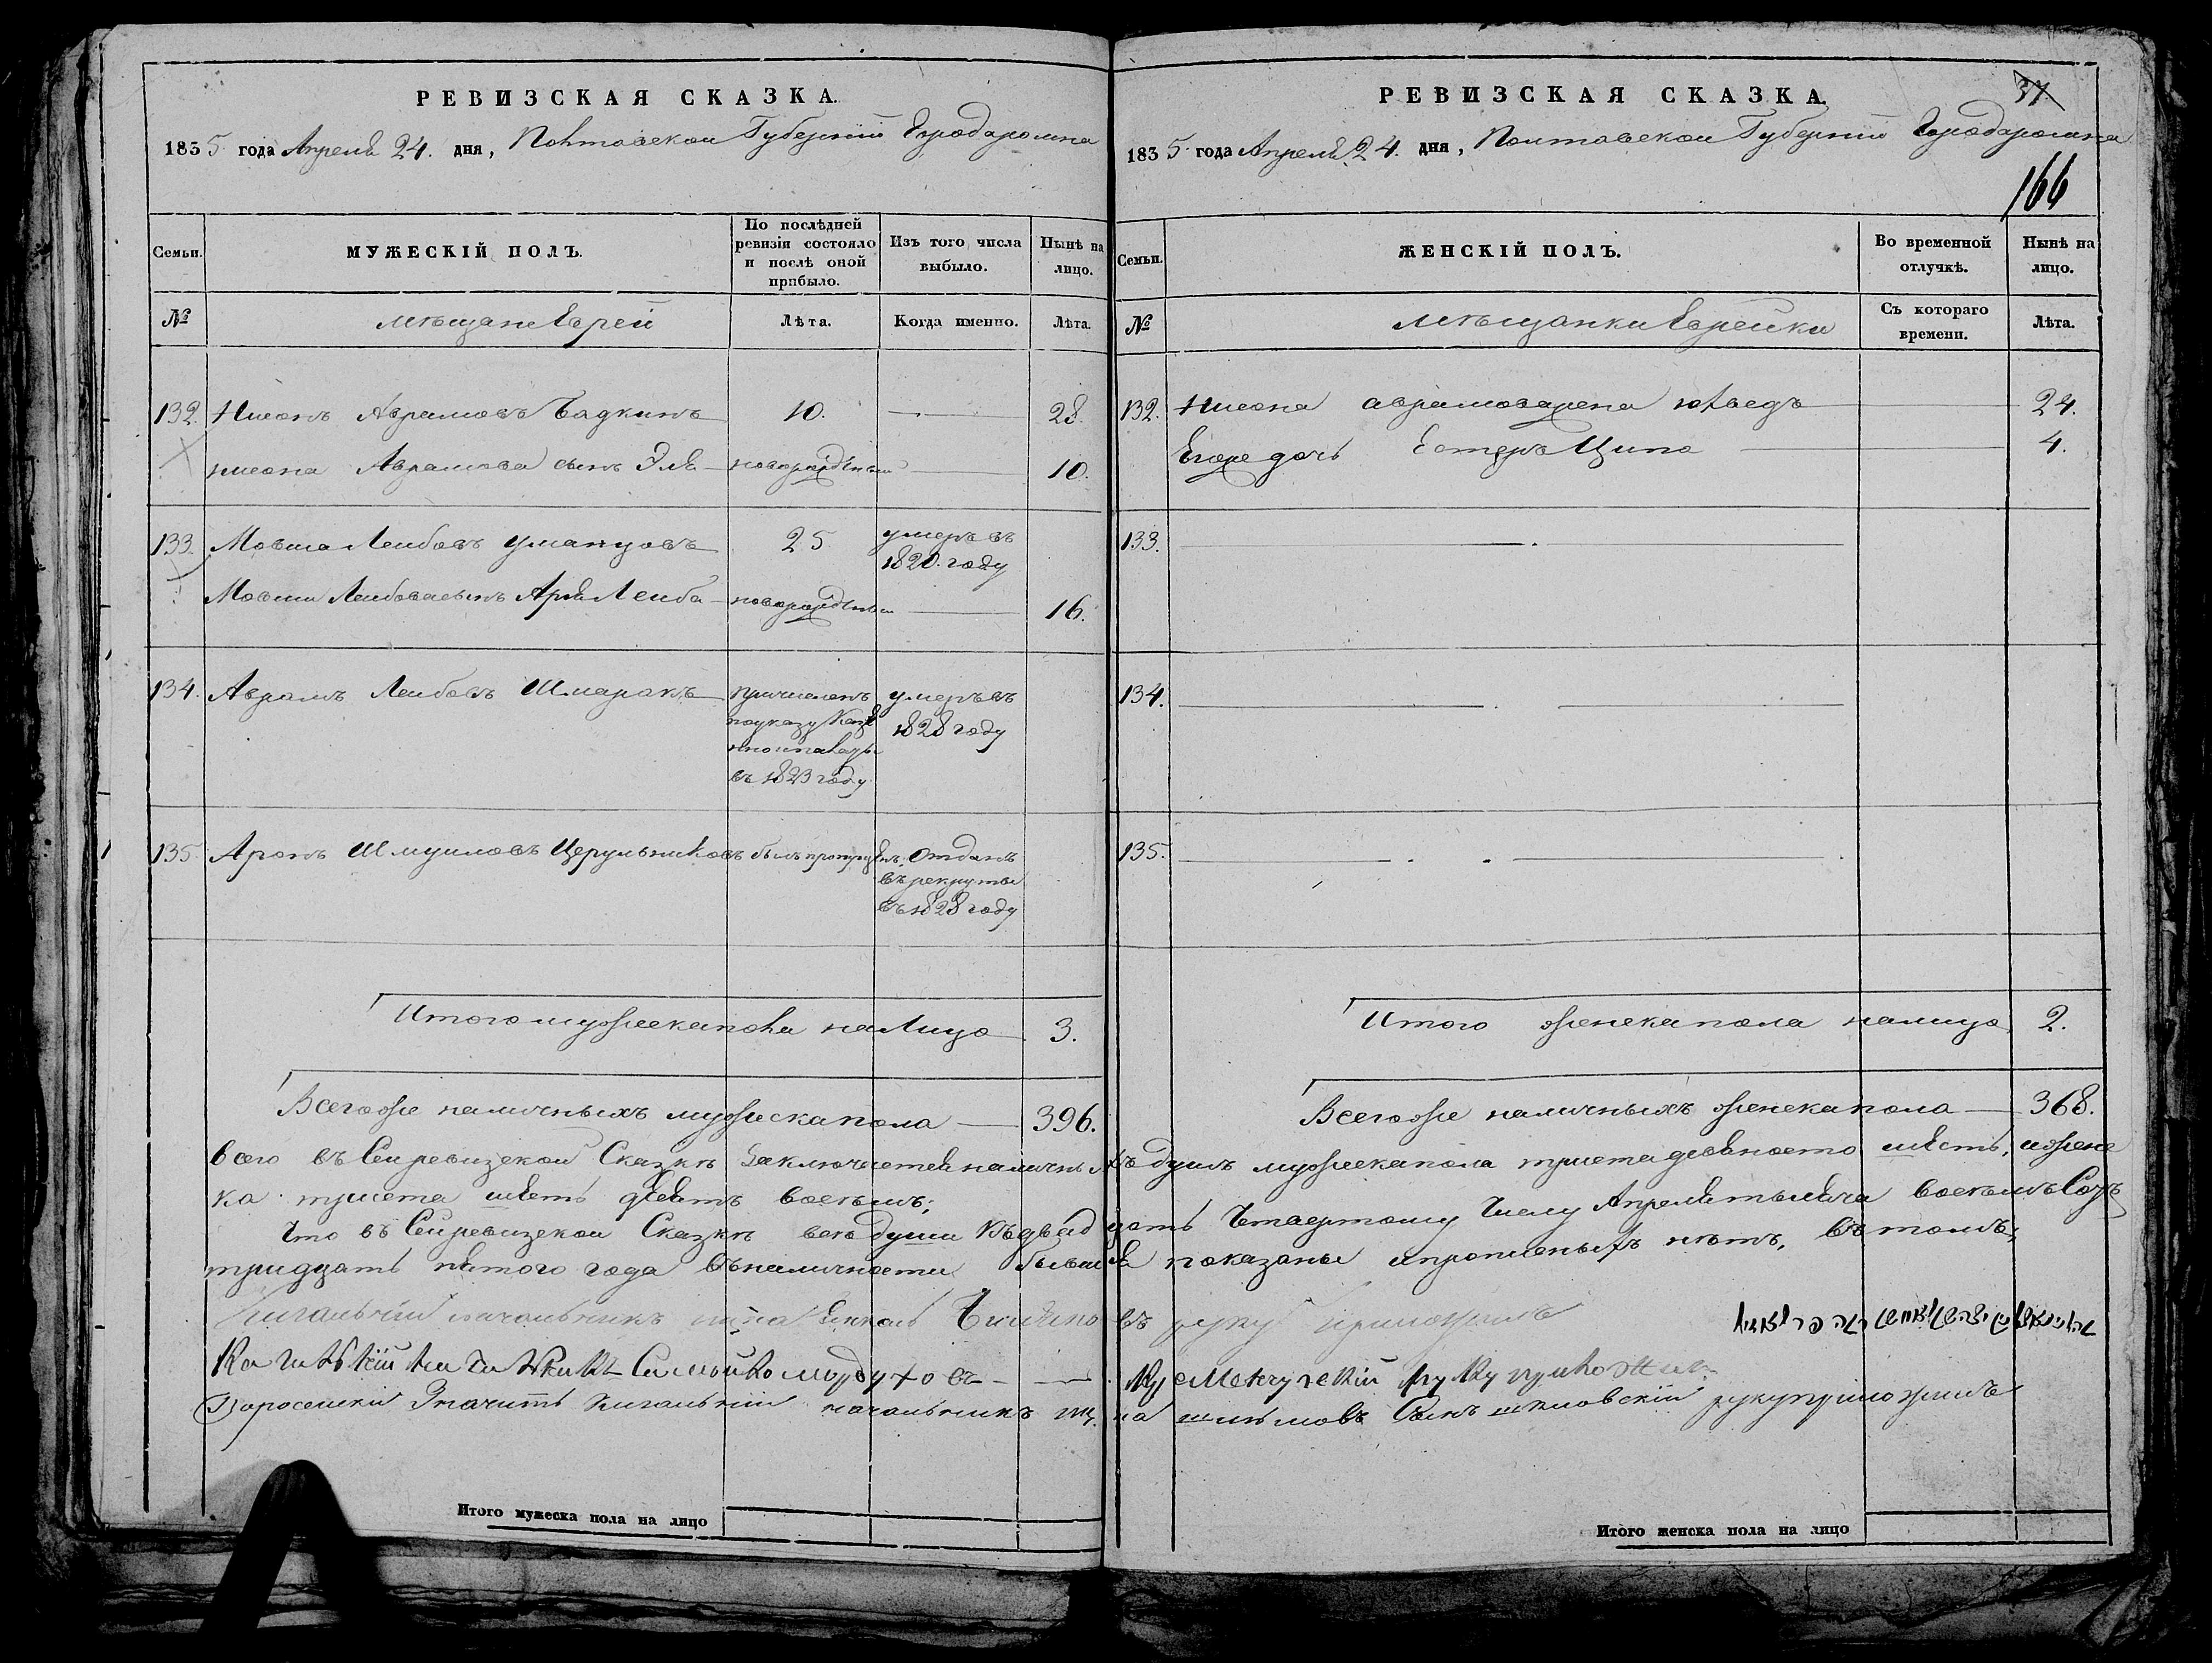 РЕВИЗСКАЯ СКАЗКА.
1835 года Апреля 24. дня, Полтавской Губернии Города Ромна
Семьи.
МУЖЕСКІЙ ПОЛЪ.
По послѣдней ревизія состояло и послѣ оной прибыло.
Изъ того числа выбыло.
Нынѣ на лицо.
№
мѣщане Евреи
Лѣта.
Когда именно.
Лѣта.
132. Нисонъ Аврамовъ Бадкинъ 10. 28.
нисона Аврамова сынъ Эля новорожденный 10.
133. Мовша Лейбовъ Уманцовъ 25 умеръ въ
1820. году
Мовши Лейбова сынъ Арья Лейба новорожденный 16.
134. Аврамъ Лейбовъ Шмаракъ причисленъ умеръ въ
по указу Казе 1828 году
нной палаты
въ 1823 году
135. Аронъ Шмуиловъ Церульниковъ былъ пропущенъ. отданъ
въ рекруты
въ 1828 году
Итого мужеска пола на Лицо 3.
Всего же наличныхъ мужеска пола 396.
РЕВИЗСКАЯ СКАЗКА.
37.
1835 года Апреля 24. дня, Полтавской Губернии Города Ромна
166
Семьи.
ЖЕНСКІЙ ПОЛЪ.
Во временной отлучкѣ.
Нынѣ на лицо.
№
мѣщанки Еврейки
Съ котораго времени.
Лѣта.
132. Нисона Аврамова жена 24.
Его же дочь Естеръ Ципа 4.
133.
134.
135.
Итого женска пола налицо 2.
Всего же наличныхъ женска пола 368.
Всего въ Сей ревизской Сказкѣ Заключается наличныхъ душъ мужеска пола триста девяносто шесть, и жене
ка триста шестьдесятъ восемь;
Что въ Сей ревизской Сказкѣ всѣ души къ двадцать Четвертому Числу Апреля тысяча восемьсотъ
тридцать пятого года въ наличности бывшія показаны и прописныхъ нѣтъ, въ томъ,
Кагальный начальникъ руку приложилъ
Кагальный начальникъ Кременчугскій руку приложилъ
По росейски Значитъ Кагальній начальникъ шкловскій руку приложилъ
Итого мужеска пола на лицо
Итого женска пола на лицо